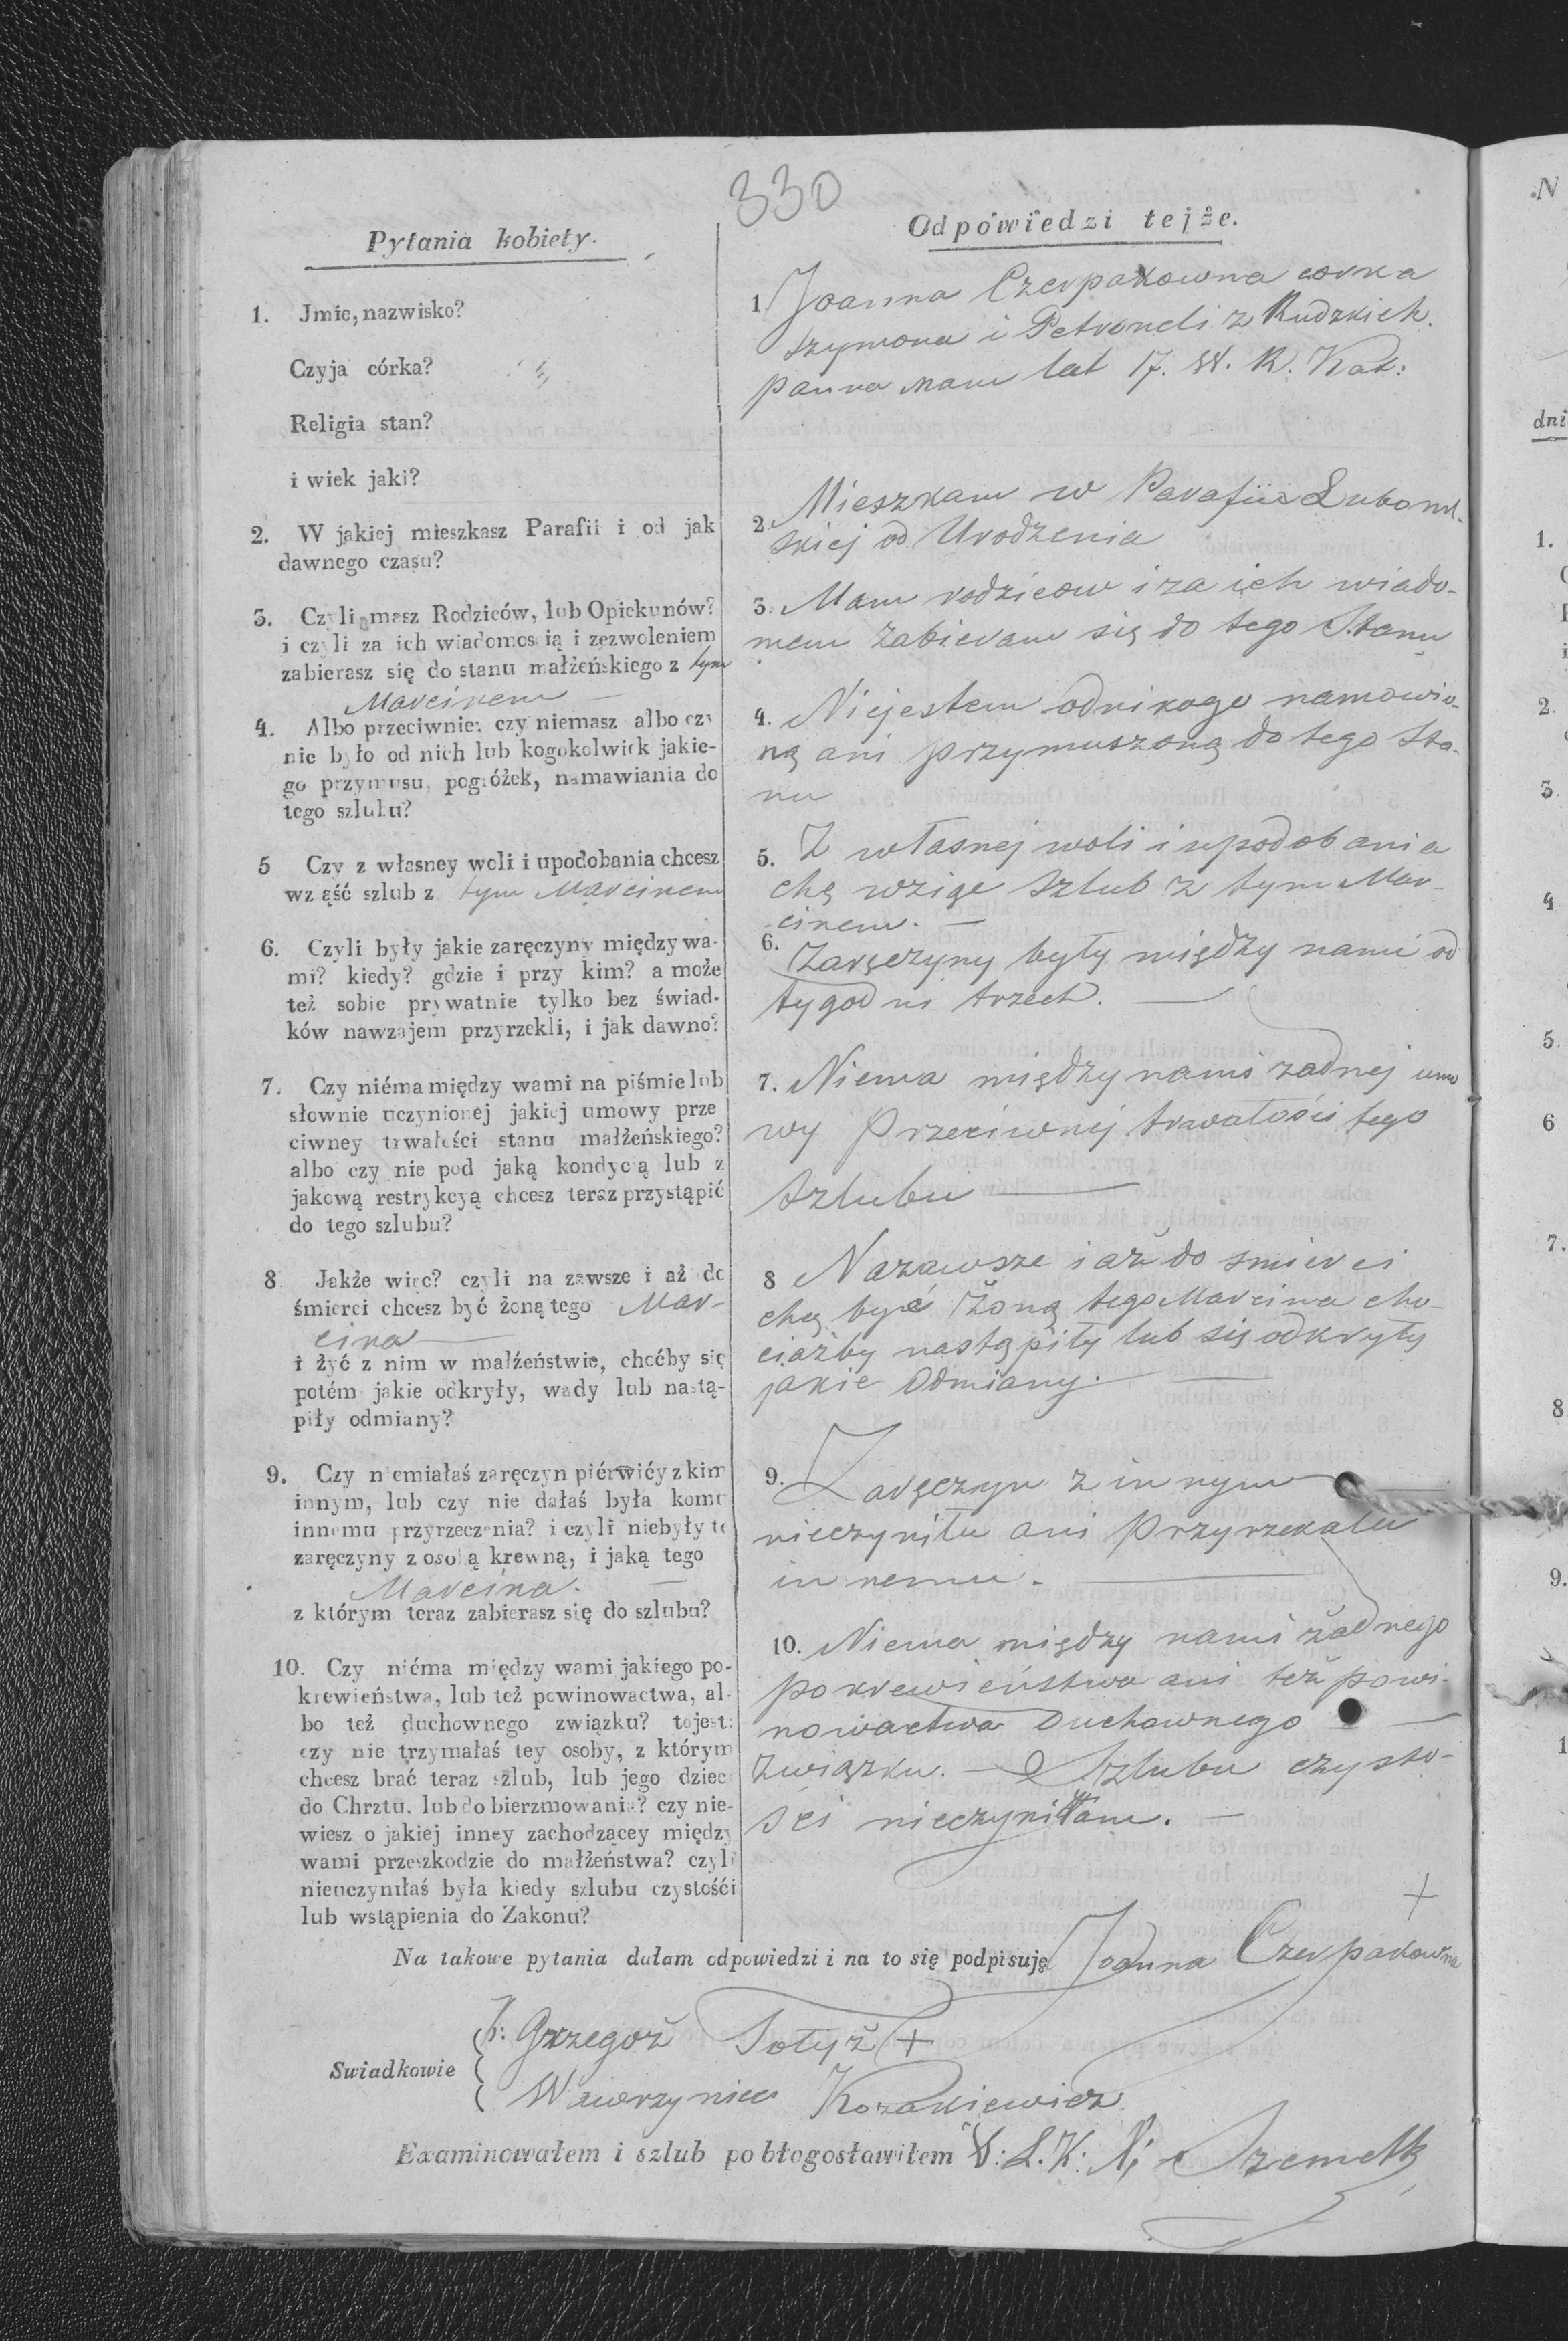 330
Pytania kobiety.
1. Jmie, nazwisko?
Czyja córka?
Religia stan?
i wiek jaki?
2. W jakiej mieszkasz Parafii i od jak
dawnego czasu?
3. Czyli masz Rodziców, lub Opiekunów?
i czyli za ich wiadomością i zezwoleniem
zabierasz się do stanu małżeńskiego z tym
Marcinem
4. Albo przeciwnie: czy niemasz albo czy
nie było od nich lub kogokolwiek jakie-
go przymusu, pogróżek, namawiania do
tego szlubu?
5 Czy z własney woli i upodobania chcesz
wziąść szlub z tym Marcinem
6. Czyli były jakie zaręczyny między wa-
mi? kiedy? gdzie i przy kim? a może
też sobie prywatnie tylko bez świad-
ków nawzajem przyrzekli, i jak dawno?
7. Czy niéma między wami na piśmie lub
słownie uczynionej jakiej umowy prze
ciwney trwałości stanu małżeńskiego?
albo czy nie pod jaką kondycią lub z
jakową restrykcyą chcesz teraz przystąpić
do tego szlubu?
8 Jakże więc? czyli na zawsze i aż do
śmierci chcesz być żoną tego Mar-
cina
i żyć z nim w małżeństwie, choćby się
potém jakie odkryły, wady lub nastą-
piły odmiany?
9. Czy niemiałaś zaręczyn piérwiéy z kim
innym, lub czy nie dałaś była komu
innemu przyrzeczenia? i czyli niebyły te
zaręczyny z osobą krewną, i jaką tego
Marcina.
z którym teraz zabierasz się do szlubu?
10. Czy niéma między wami jakiego po-
krewieństwa, lub też powinowactwa, al-
bo też duchownego związku? to jest:
czy nie trzymałaś tey osoby, z którym
chcesz brać teraz szlub, lub jego dziec
do Chrztu, lub do bierzmowania? czy nie-
wiesz o jakiej inney zachodzącey między
wami przeszkodzie do małżeństwa? czyli
nieuczyniłaś była kiedy szlubu czystośći
lub wstąpienia do Zakonu?
Odpowiedzi tejże.
1. Joanna Czerpakowna corka
Szymona i Petroneli z Rudzkich.
panna mam lat 17. W. R. Kat:
2. Mieszkam w Parafiia Luboml-
skiej od Urodzenia
3. Mam rodzicow i za ich wiado-
mem zabieram się do tego Stanu
4. Niejestem odnikogo namowio-
ną ani przymuszoną do tego Sta-
nu
5. Z własnej woli i upodobania
chę wziąc szlub z tym Mar-
cinem.
6. Zaręczyny były między nami od
tygodni trzech.
7. Niema między nami zadnej umo
wy przeciwnej trwałości tego
szlubu
8 Nazawsze i aż do smierci
chę być Żoną tego Marcina cho-
ciażby nastąpiły lub się odkryły
jakie Odmiany.
9. Zaręczyn z innym
nieczyniła ani przyrzekała
innemu.
10. Niema między nami żadnego
pokrewieństwa ani też powi-
nowactwa Duchownego
związku. Szlubu czysto-
sci nieczyniłam.
+
Na takowe pytania dałam odpowiedzi i na to się podpisuję Joanna Czerpakowna
Swiadkowie
Grzegoż +
Wawrzyniec Kozakiewicz
Examinowałem i szlub pobłogosławiłem
N
dni
1.
2.
3.
4
5.
6
7.
8
9.
1